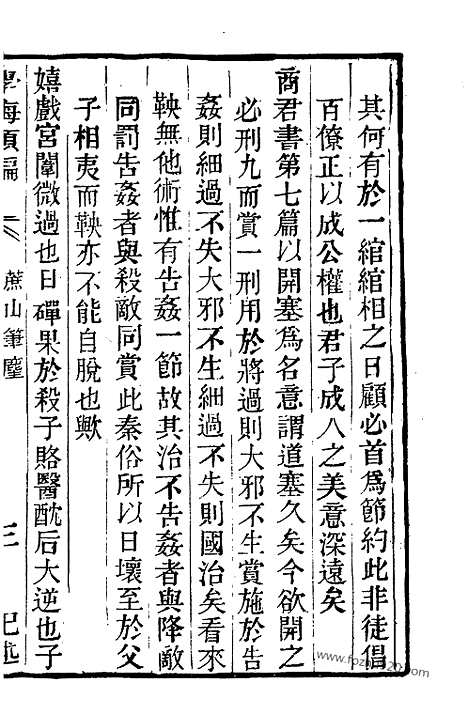 其何有於一綰綰相之日顧必首爲節約此非徒倡
百僚正以成公權也君子成人之美意深遠矣
商君書第七篇以開塞爲名意謂道塞久矣今欲開之
必刑九而賞一刑用於將過則大邪不生賞施於告
姦則細過不失大邪不生細過不失則國治矣看來
鞅無他術惟有告姦一節故其治不告姦者與降敵
同罰告姦者與殺敵同賞此秦俗所以日壞至於父
子相夷而鞅亦不能自脫也歟
嬉戲宮闈微過也日磾果於殺子賂醫酖后大逆也子
學海類編
蔗山筆麈
三
已述